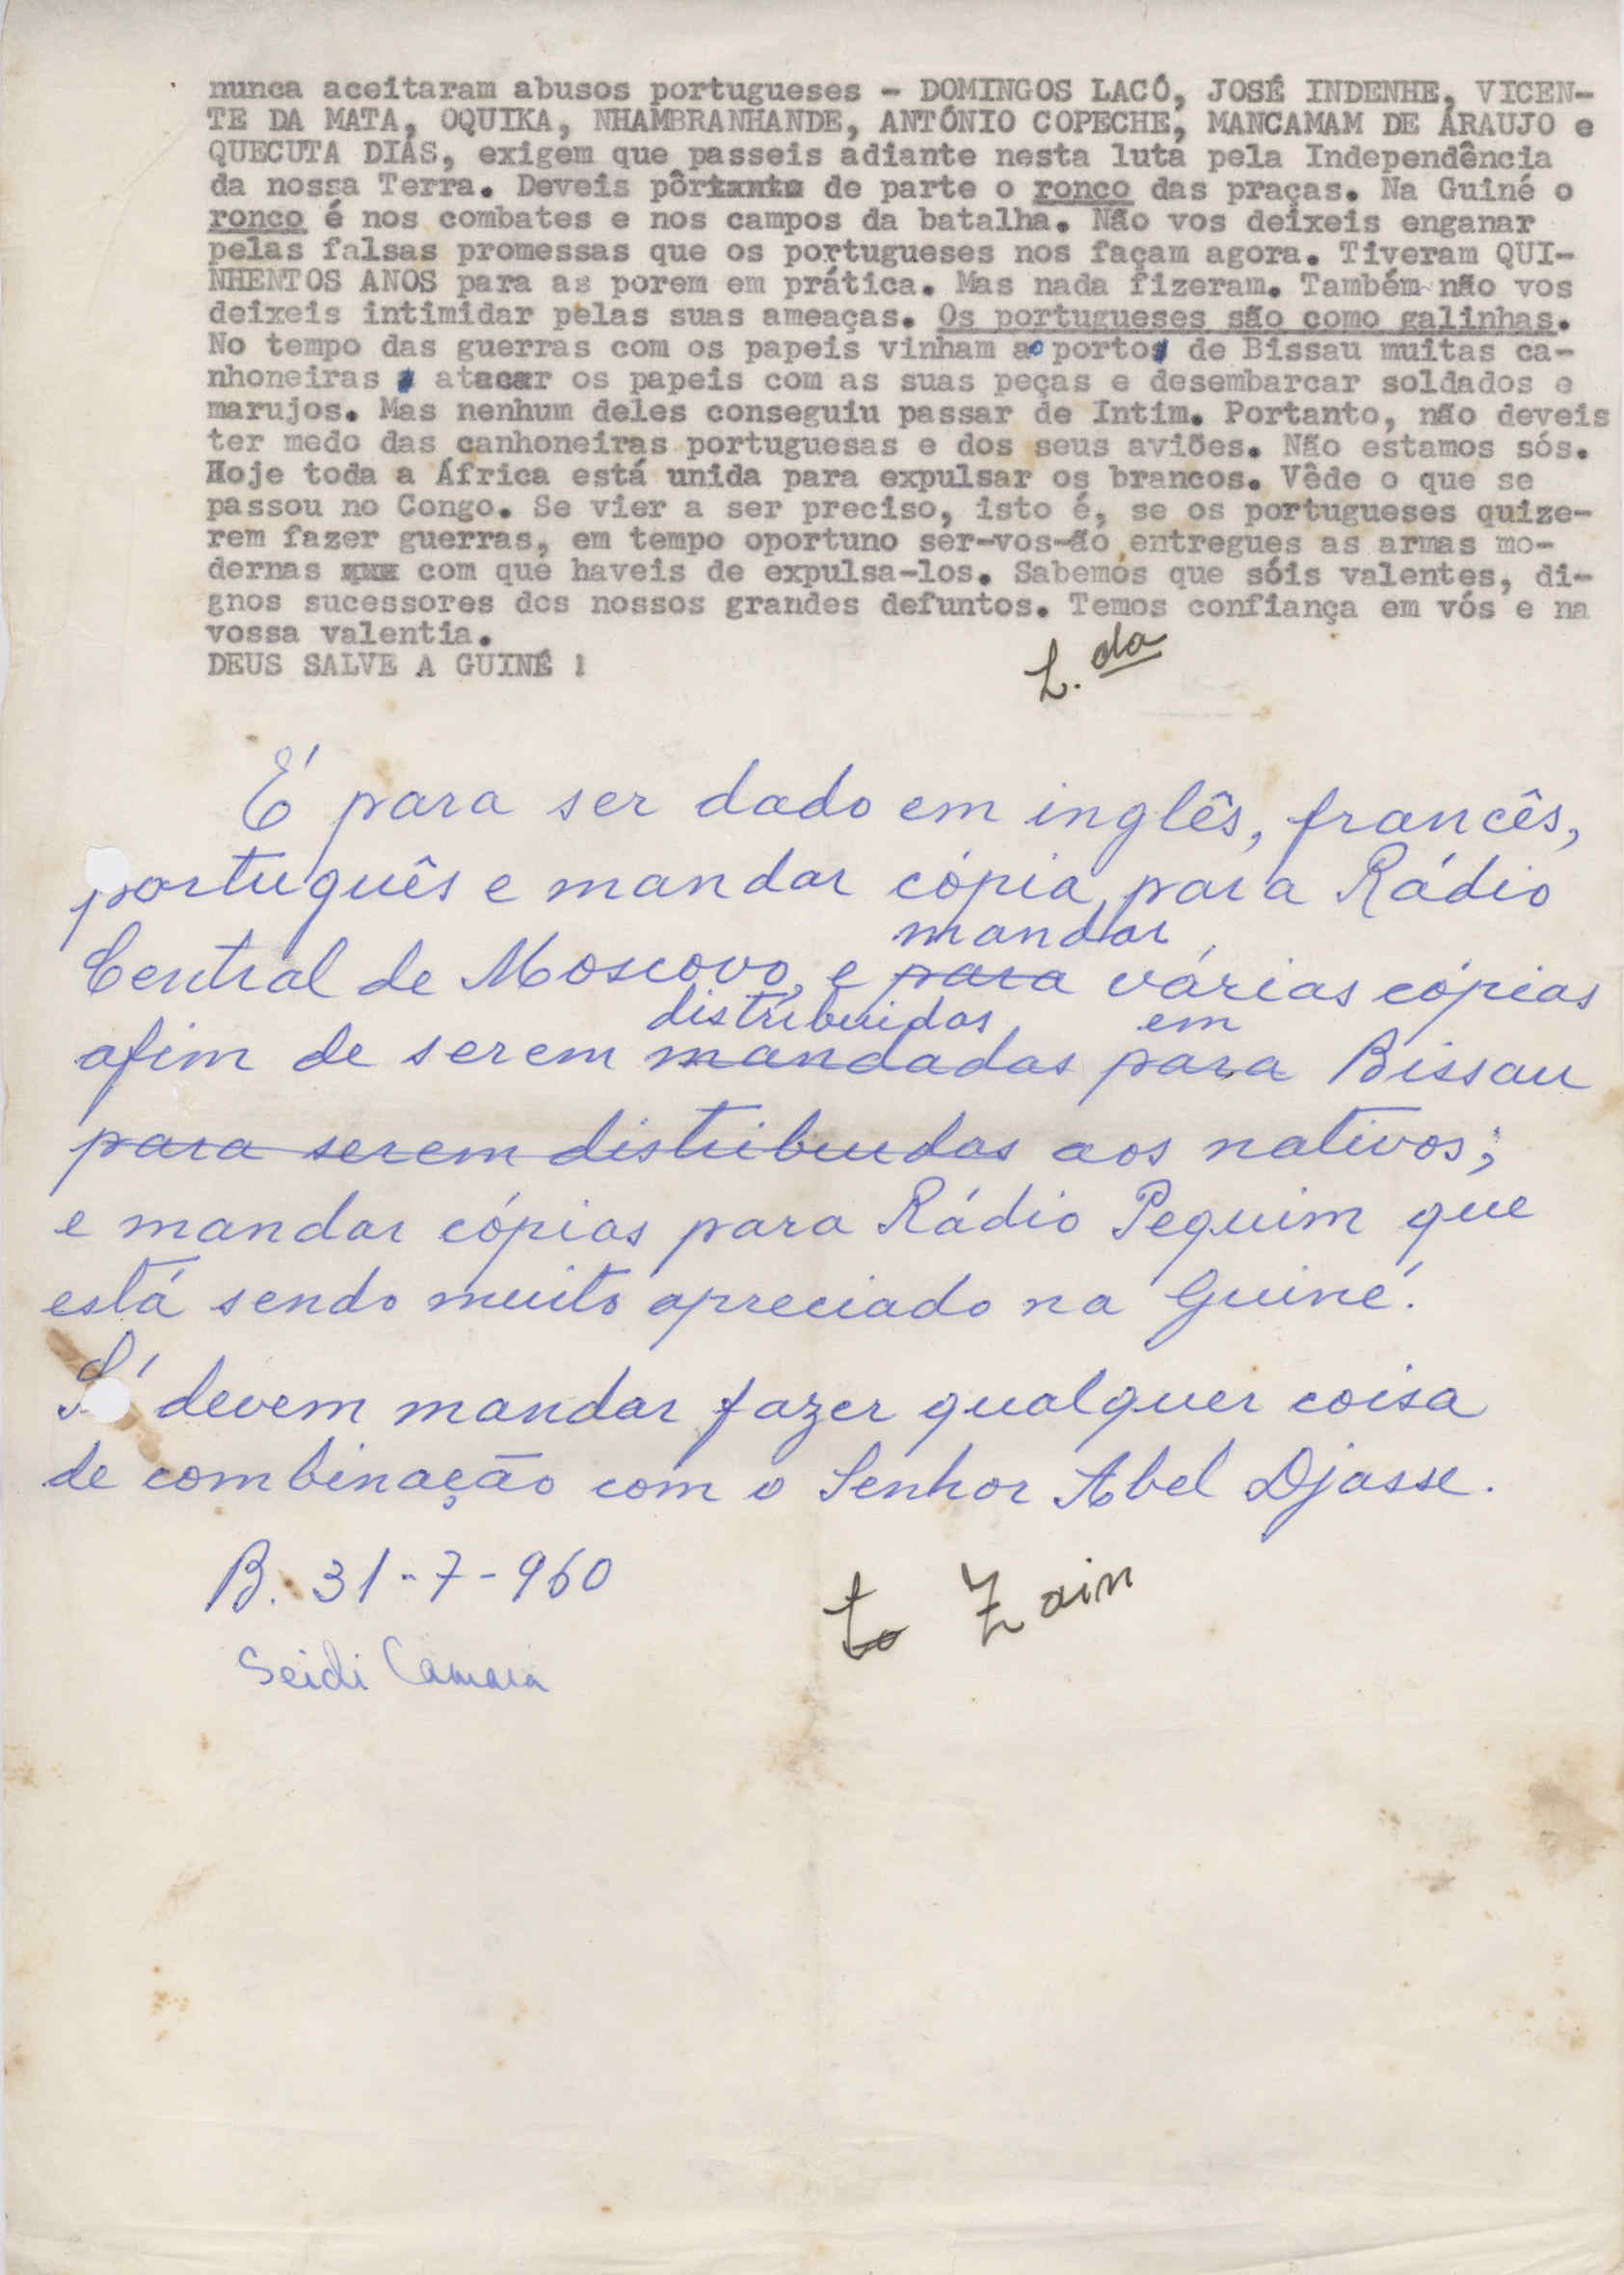 nunca aceitaram abusos portugueses - DOMINGOS LACÓ, JOSÉ INDENHE, VICEN-
TE DA MATA, OQUIKA, NHAMBRANHANDE, ANTÓNIO COPECHE, MANCAMAM DE ARAUJO e
QUECUTA DIAS, exigem que passeis adiante nesta luta pela Independência
da nossa Terra. Deveis pôr de parte o ronco das praças. Na Guiné o
ronco é nos combates e nos campos da batalha. Não vos deixeis enganar
pelas falsas promessas que os portugueses nos façam agora. Tiveram QUI-
NHENTOS ANOS para as porem em prática. Mas nada fizeram. Também não vos
deixeis intimidar pelas suas ameaças. Os portugueses são como galinhas.
No tempo das guerras com os papeis vinham ao porto de Bissau muitas ca-
nhoneiras atacar os papeis com as suas peças e desembarcar soldados e
marujos. Mas nenhum deles conseguiu passar de Intim. Portanto, não deveis
ter medo das canhoneiras portuguesas e dos seus aviões. Não estamos sós.
Hoje toda a África está unida para expulsar os brancos. Vêde o que se
passou no Congo. Se vier a ser preciso, isto é, se os portugueses quize-
rem fazer guerras, em tempo oportuno ser-vos-ão entregues as armas mo-
dernas com que haveis de expulsa-los. Sabemos que sóis valentes, di-
gnos sucessores dos nossos grandes defuntos. Temos confiança em vós e na
vossa valentia.
DEUS SALVE A GUINÉ !
L.da
É para ser dado em inglês, francês,
português e mandar cópia para Rádio
mandar
Central de Moscovo, e para várias cópias
distribuidas em
afim de serem mandadas para Bissau
para serem distribuidas aos nativos;
e mandar cópias para Rádio Pequim que
está sendo muito apreciado na Guiné.
Só devem mandar fazer qualquer coisa
de combinação com o Senhor Abel Djasse.
B. 31-7-960
to Zain
Seidi Camara